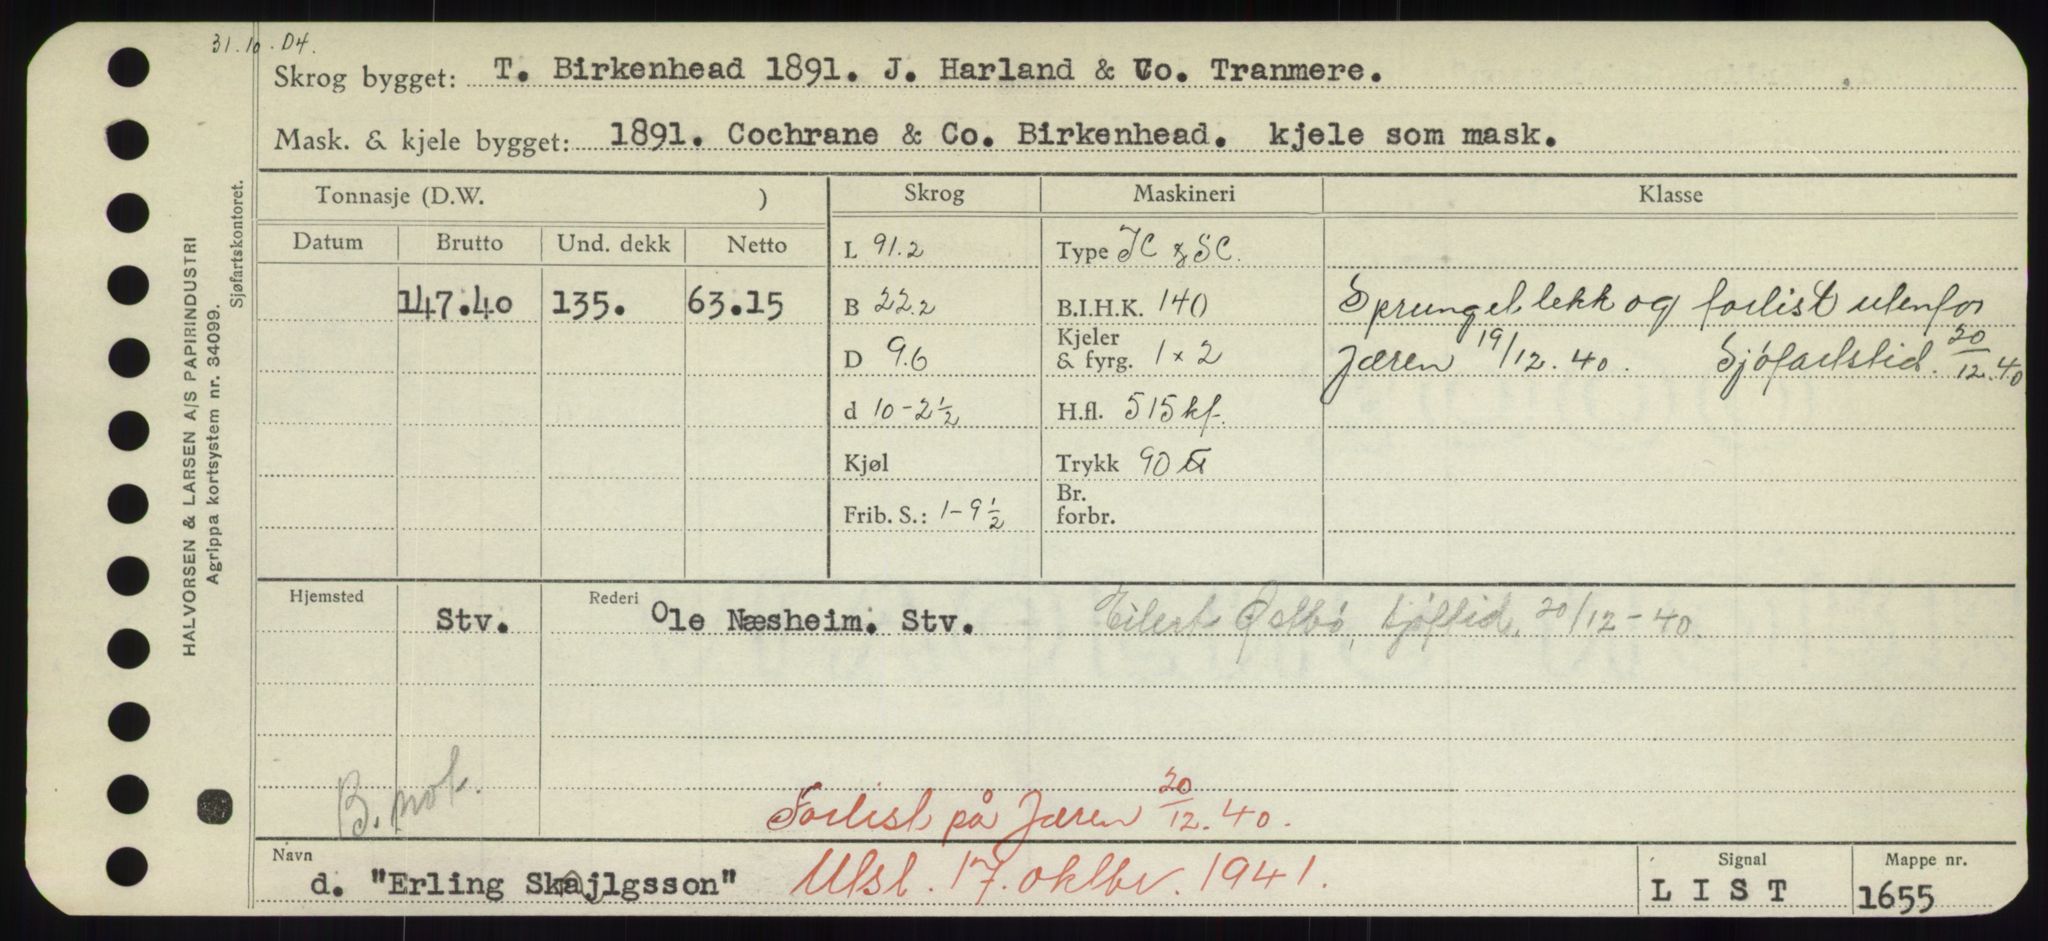 31.10.D4.
Skrog bygget: T. Birkenhead 1891. J. Harland & Co. Tranmere.
Mask. & kjele bygget: 1891. Cochrane & Co. Birkenhead. kjele som mask.
Tonnasje (D.W. ) Skrog Maskineri Klasse
Datum Brutto Und. dekk Netto
147.40 135. 63.15
L 91.2
B 22.2
D 9.6
d 10-2½
Kjøl
Frib. S.: 1-9½
Type
B.I.H.K. 140
Kjeler & fyrg. 1 x 2
H.fl. 515 kf.
Trykk 90
Br. forbr.
Sprunget lekk og forlist utenfor
Jæren 19/12.40. Sjöfartstid. 20/12.40
Hjemsted Rederi
Stv. Ole Næsheim. Stv. Eilert Østbö, Sjöftid. 20/12-40.
B. not.
Forlist på Jæren 20/12.40.
Navn Signal Mappe nr.
d. "Erling Skajlgsson" Utsl. 17. oktbr. 1941. LIST 1655
HALVORSEN & LARSEN A/S PAPIRINDUSTRI
Agrippa kortsystem nr. 34099.
Sjøfartskontoret.